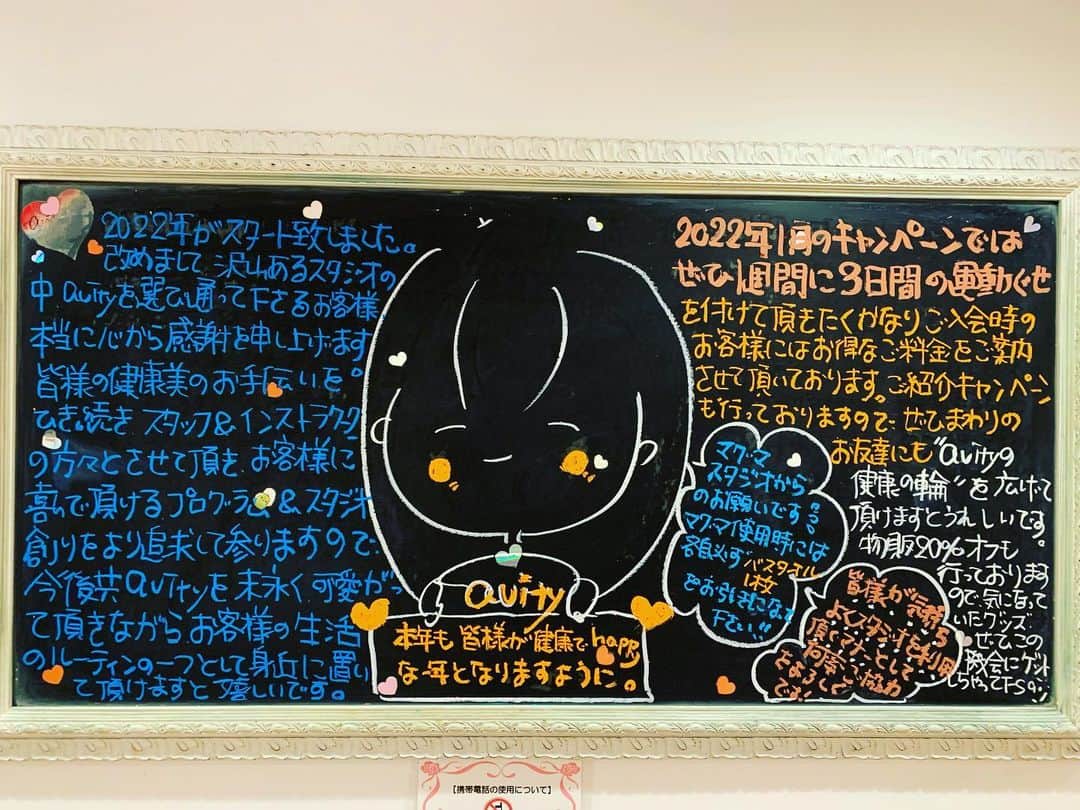 2022年がスタート致しました。
改めまして沢山あるスタジオの
中auityを選び通って下さるお客様
本当に心から感謝を申し上げます
皆様の健康美のお手伝いを。
ひき続きスタッフ&インストラクター
の方々とさせて頂き、お客様に
喜んで頂けるプログラム&スタジオ
創りをより追求して参りますので、
今後共auityを末永く可愛がっ
て頂きながらお客様の生活
のルーティンの一つとして身近に置い
て頂けますと嬉しいです。
auity
本年も皆様が健康でhappy
な年となりますように。
2022年1月のキャンペーンでは
ぜひ1週間に3日間の運動ぐせ
を付けて頂きたくかなりご入会時の
お客様にはお得なご料金をご案内
させて頂いております。ご紹介キャンペーン
も行っておりますので、ぜひまわりの
お友達にも"auityの
健康の輪"を広げて
頂けますとうれしいです。
物販20%オフも
行っております
ので、気になって
いたグッズ
ぜひこの
機会にゲット
しちゃって下さい
マグマ
スタジオから
のお願いです
マグマ使用時には
各自必ずバスタオル
1枚
をお引きになって
下さい!!
皆様が気持ち
よくスタジオを利用
頂くマナーとして
何卒ご協力
です!
【携帯電話の使用について】